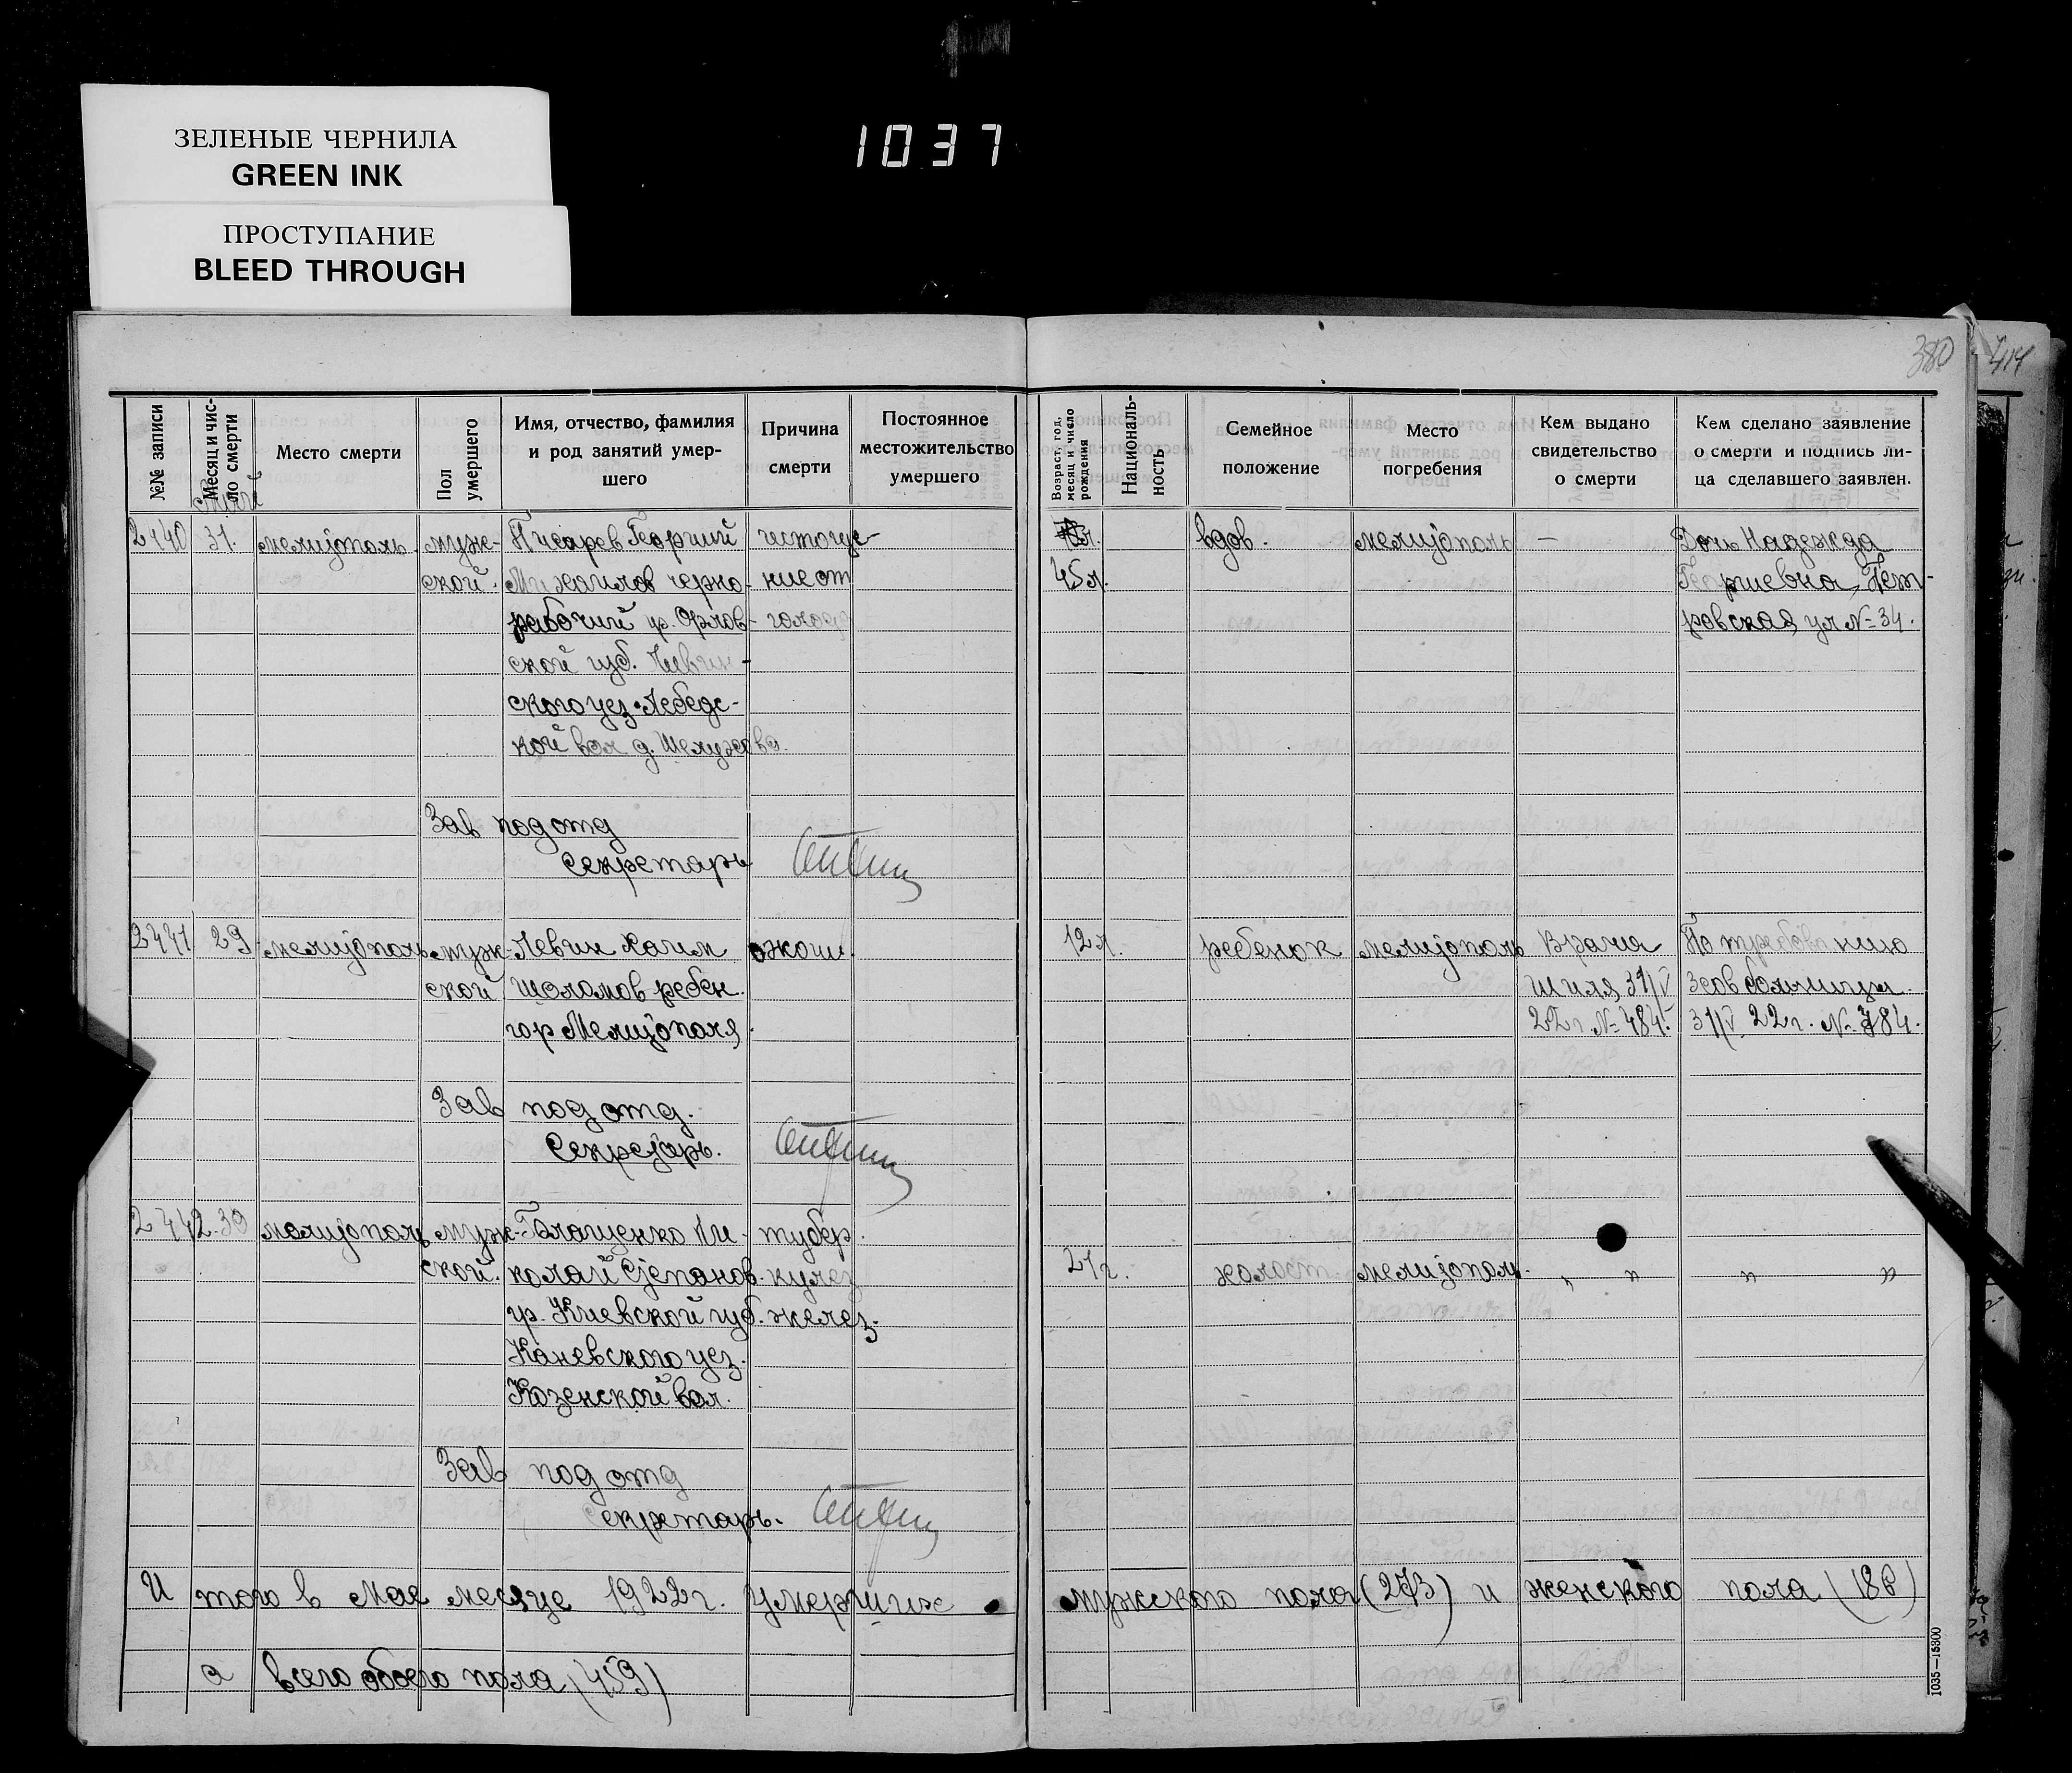 1037
ЗЕЛЕНЫЕ ЧЕРНИЛА
GREEN INK
ПРОСТУПАНИЕ
BLEED THROUGH
380
414
№№ записи
Месяц и чис-
ло смерти
Место смерти
Пол
умершего
Имя, отчество, фамилия
и род занятий умер-
шего
Причина
смерти
Постоянное
местожительство
умершего
Возраст, год,
месяц и число
рождения
Националь-
ность
Семейное
положение
Место
погребения
Кем выдано
свидетельство
о смерти
Кем сделано заявление
о смерти и подпись ли-
ца сделавшего заявлен.
2440
31.
мелитополь
муж-
ской.
Писарев Георгий
Михаилов черно-
рабочий гр. Орлов-
ской губ. Ливин-
ского уез. Лебедс-
кой вол д.
истоще-
ние от
голода
45 л.
вдов.
мелитополь
—
Дочь Надежда
Георгиевна, Пет-
ровская ул № 34.
Зав подотд
Секретарь
2441
29
мелитополь
муж-
ской
Левин Хаим
Шоломов ребен.
гор Мелитополя
ожоги.
12 л.
ребенок
мелитополь
Врачия
Шиля 31/V
22 г. № 484.
По требованию
Зав больницы
31/V 22 г. № 484.
Зав подотд.
Секретарь.
2442
30
мелитополь
муж-
ской.
Глащенко Ни-
колай Степанов.
гр. Киевской губ.
Каневского уез.
Козенской вол.
тубер.
кулез
желез.
21 г.
холост.
мелитополь.
" "
" "
Зав подотд
Секретарь.
Итого в Мае месяце 1922 г. умерших мужского пола (273) и женского пола (186)
а всего обоего пола (459)
1035—15800